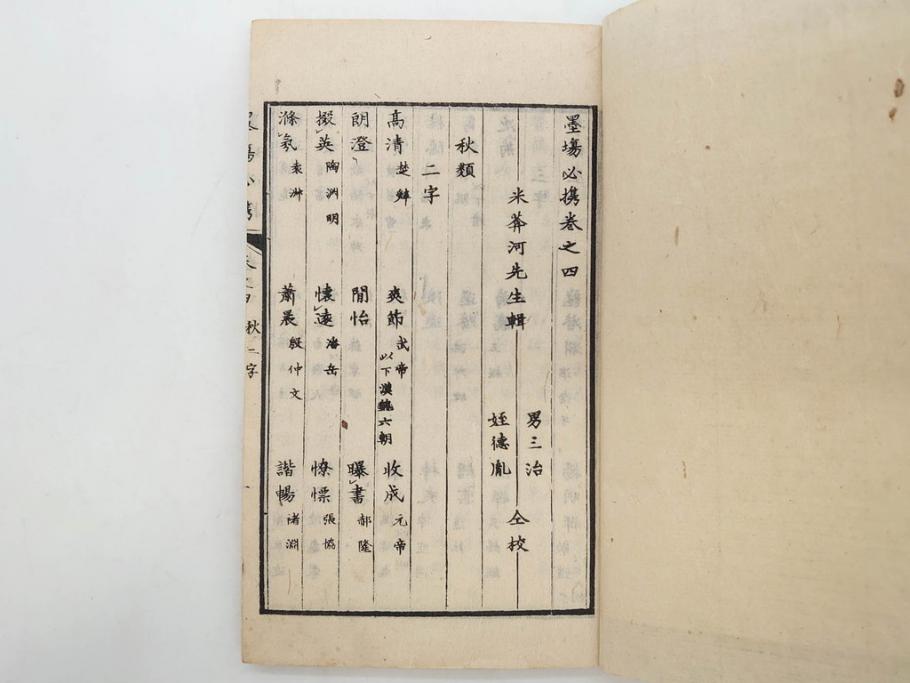 墨場必携巻之四
米葊河先生輯
男三治
姪德胤
仝校
秋類
二字
高清 楚辭
爽節 武帝 以下漢魏六朝
收成 元帝
朗澄
閒怡
曝書 郝隆
掇英 陶渊明
懷遠 潘岳
憭慄 張協
滌氣 袁淋
蕭晨 殷仲文
諧暢 褚淵
墨場必携 巻之四 秋二字